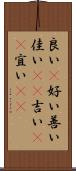 良い 好い 善い
佳い 吉い
宜い